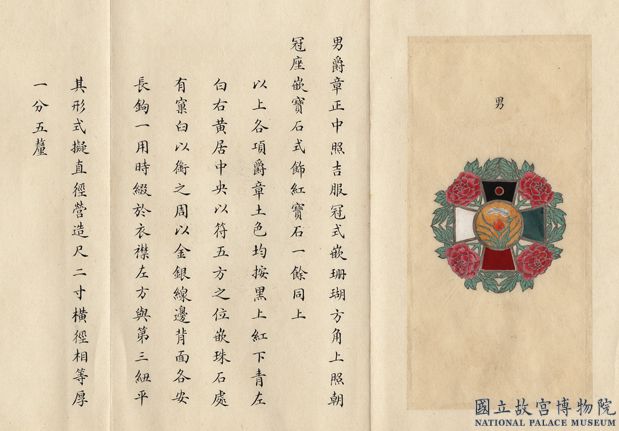 男
男爵章正中照吉服冠式嵌珊瑚方角上照朝
冠座嵌寶石式飾紅寶石一餘同上
以上各項爵章土色均按黑上紅下青左
白右黃居中央以符五方之位嵌珠石處
有窠臼以銜之周以金銀線邊背面各安
長鉤一用時綴於衣襟左方與第三紐平
其形式擬直徑營造尺二寸橫徑相等厚
一分五釐
國立故宮博物院
NATIONAL PALACE MUSEUM